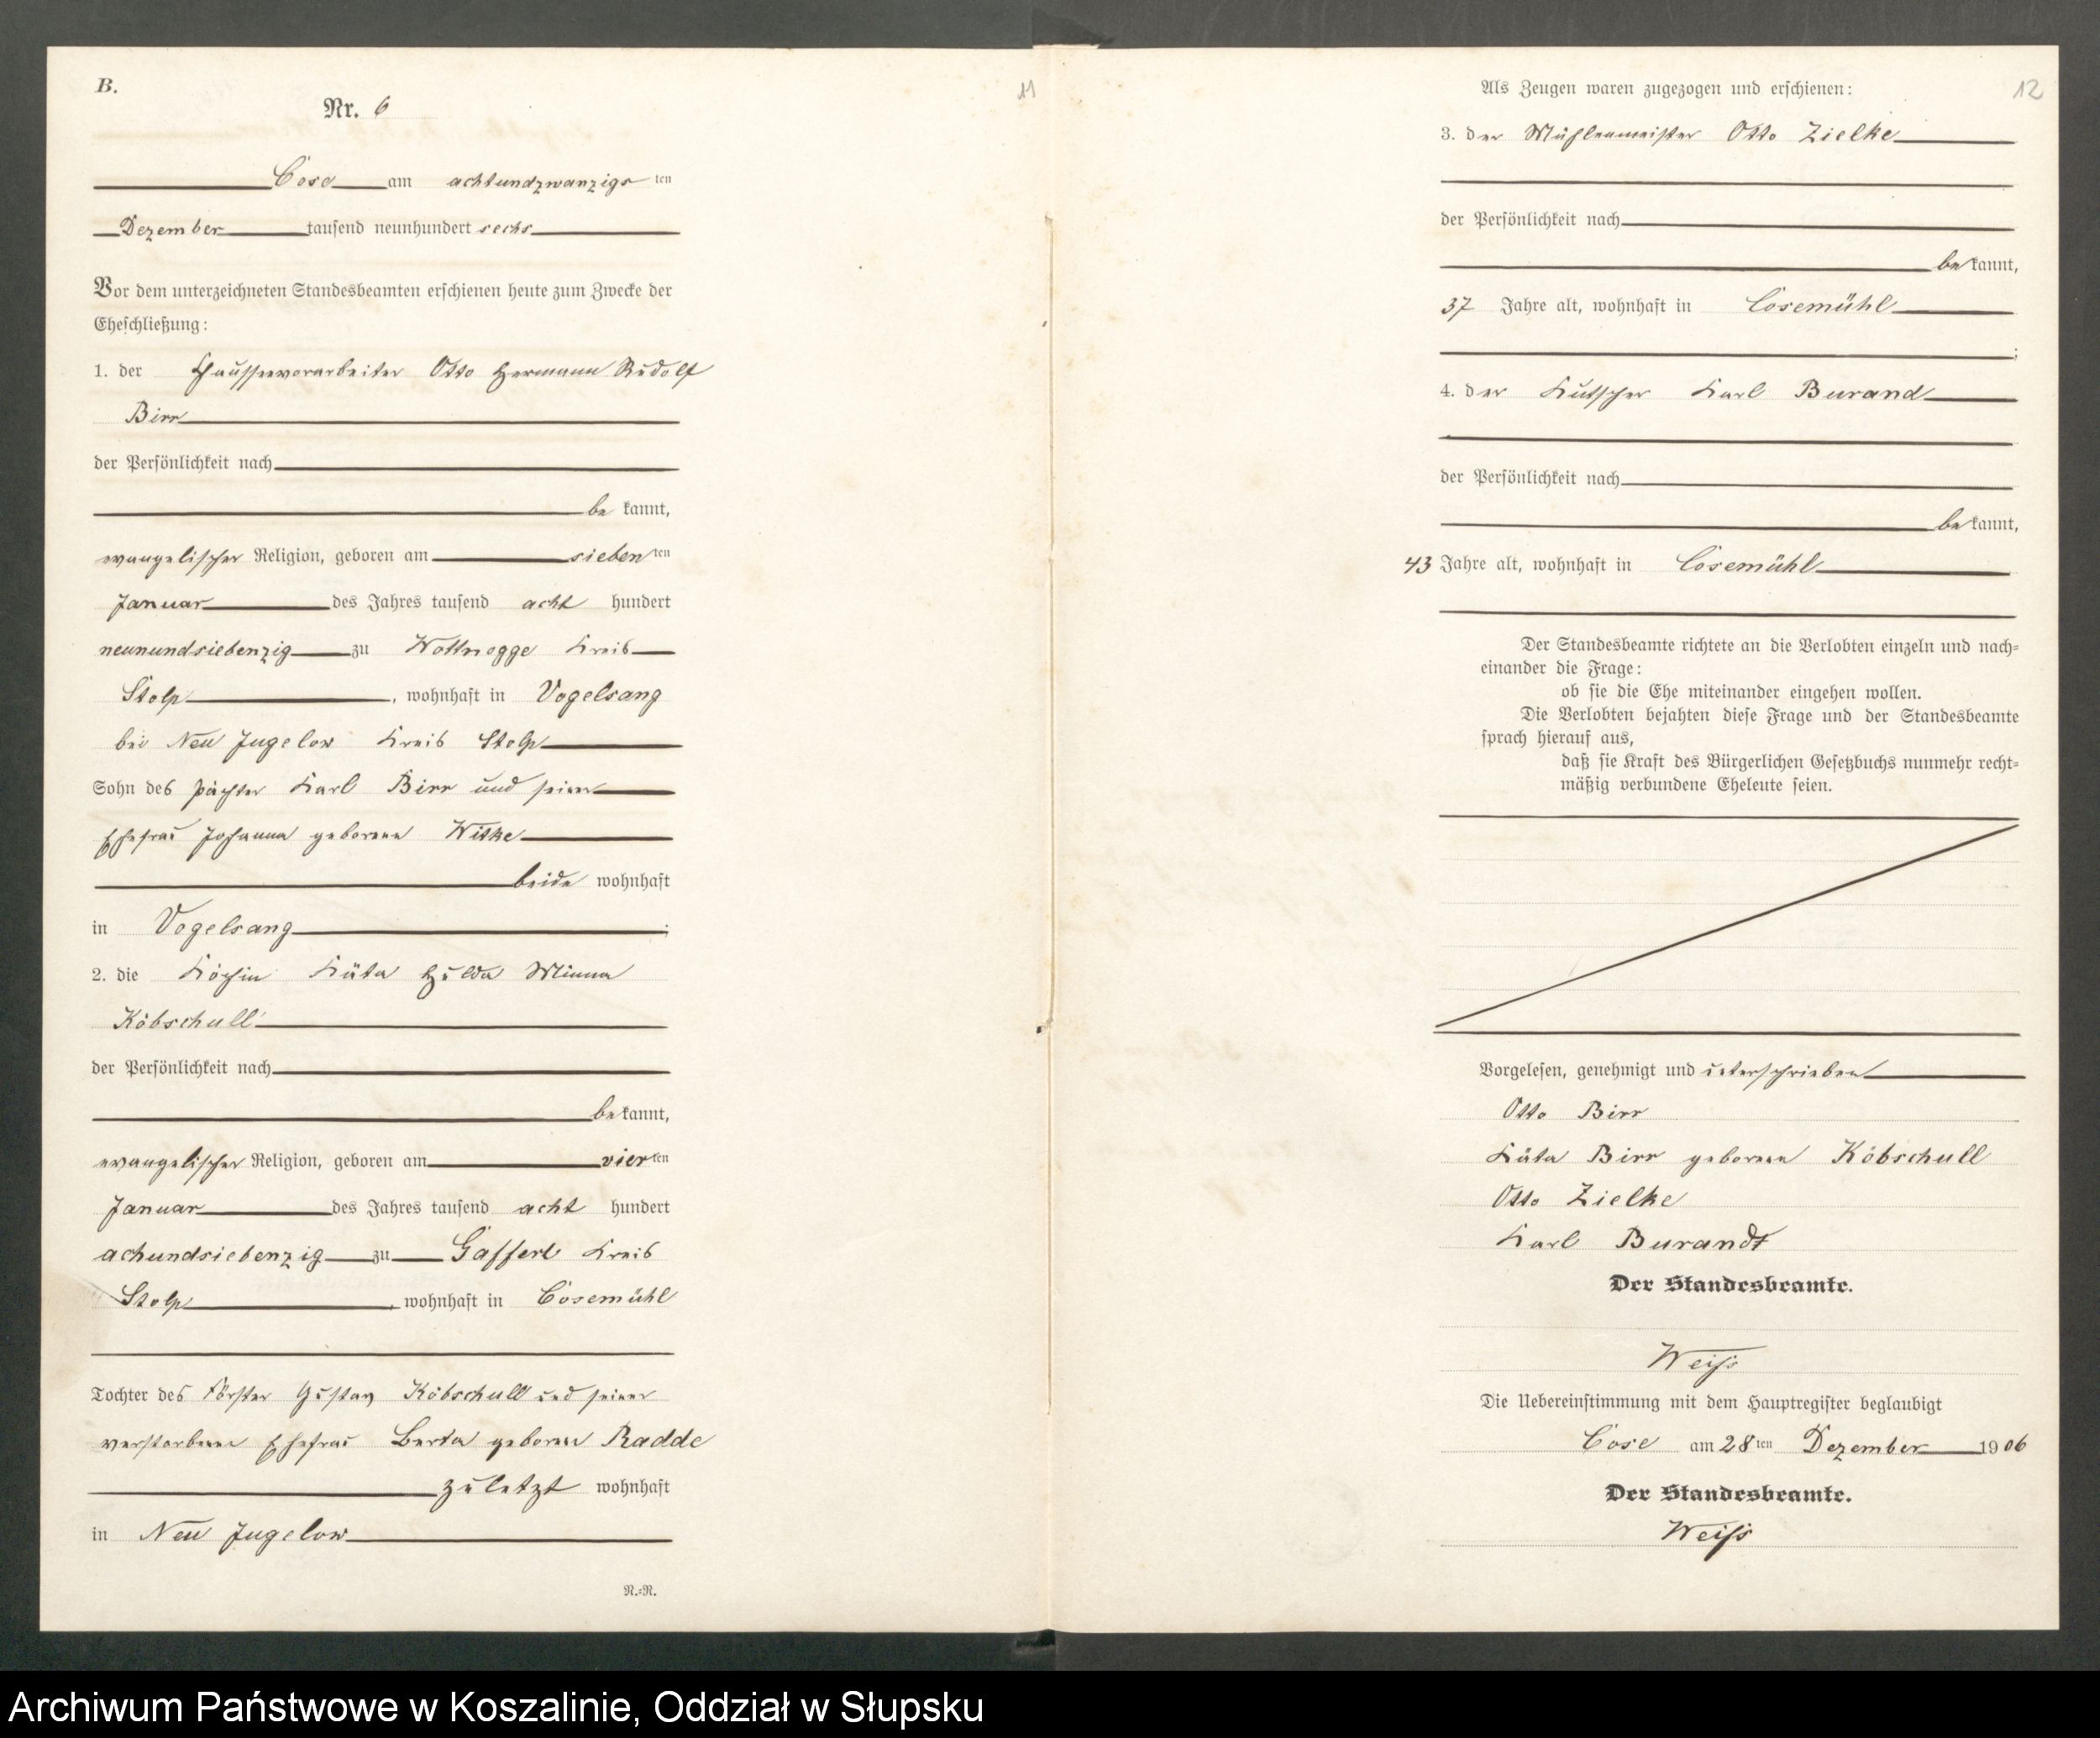 B.
11
Nr. 6
Cose am achtundzwanzigsten
Dezember tausend neunhundert sechs
Vor dem unterzeichneten Standesbeamten erschienen heute zum Zwecke der
Eheschließung:
1. der Chausseevorarbeiter Otto Hermann Rudolf
Birr
der Persönlichkeit nach
be kannt,
evangelischer Religion, geboren am siebenten
Januar des Jahres tausend acht hundert
neunundsiebenzig zu Wottnogge Kreis
Stolp, wohnhaft in Vogelsang
bei Neu Jugelow Kreis Stolp
Sohn des Pächter Karl Birr und seiner
Ehefrau Johanna geborene Witke
beide wohnhaft
in Vogelsang;
2. die Köchin Käta Hulda Minna
Köbschull
der Persönlichkeit nach
be kannt,
evangelischer Religion, geboren am vierten
Januar des Jahres tausend acht hundert
achundsiebenzig zu Gaffert Kreis
Stolp, wohnhaft in Cosemühl
Tochter des Förster Gustav Köbschull und seiner
verstorbenen Ehefrau Berta geborene Radde
zuletzt wohnhaft
in Neu Jugelow
N.=N.
12
Als Zeugen waren zugezogen und erschienen:
3. der Mühlenmeister Otto Zielke
der Persönlichkeit nach
be kannt,
37 Jahre alt, wohnhaft in Cosemühl
;
4. der Kutscher Karl Burand
der Persönlichkeit nach
be kannt,
43 Jahre alt, wohnhaft in Cosemühl
Der Standesbeamte richtete an die Verlobten einzeln und nach=
einander die Frage:
ob sie die Ehe miteinander eingehen wollen.
Die Verlobten bejahten diese Frage und der Standesbeamte
sprach hierauf aus,
daß sie Kraft des Bürgerlichen Gesetzbuchs nunmehr recht=
mäßig verbundene Eheleute seien.
Vorgelesen, genehmigt und unterschrieben
Otto Birr
Käta Birr geborene Köbschull
Otto Zielke
Karl Burandt
Der Standesbeamte.
Weiß
Die Uebereinstimmung mit dem Hauptregister beglaubigt
Cose am 28ten Dezember 1906
Der Standesbeamte.
Weiß
Archiwum Państwowe w Koszalinie, Oddział w Słupsku